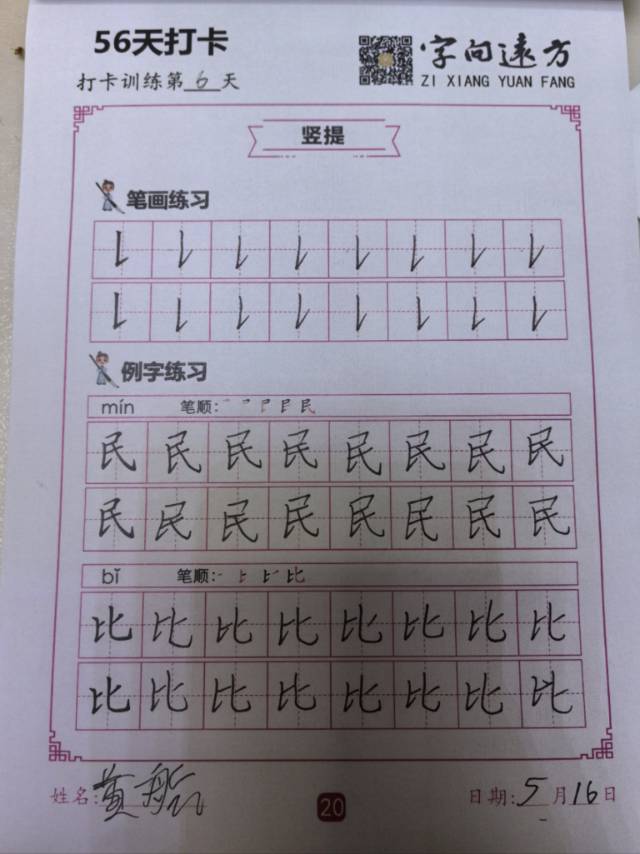 56天打卡
字向远方
ZI XIANG YUAN FANG
打卡训练第6天
竖提
笔画练习
例字练习
mín 笔顺:
民民民民民民民民
民民民民民民民民
bǐ 笔顺:
比比比比比比比比
比比比比比比比比
姓名:黄
20
日期:5月16日